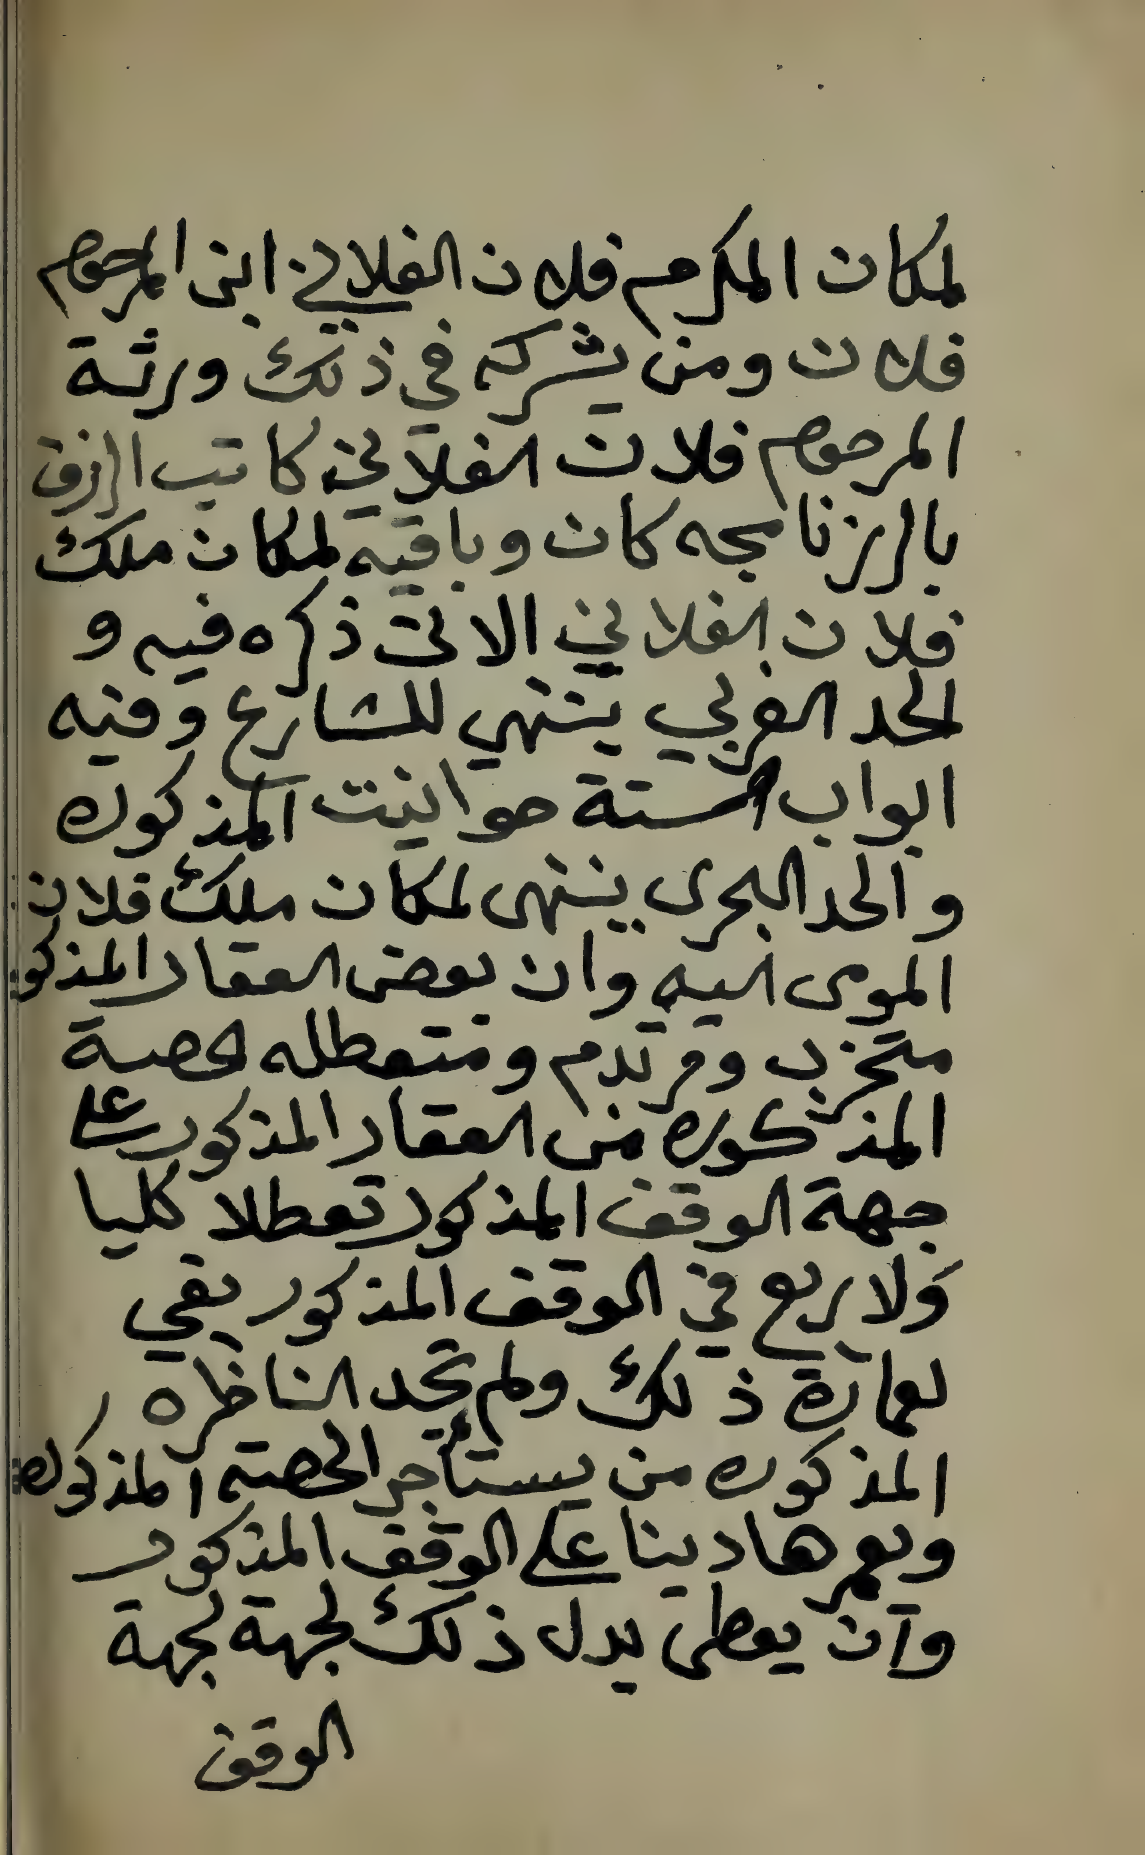 لمكان المكرم فلان الفلاني ابن المرحوم
فلان ومن يشركه في ذلك ورثة
المرحوم فلان الفلاني كاتب الرزق
بالرزنامجه كان وباقيه لمكان ملك
فلان الفلاني الاتى ذكره فيه و
الحد الغربي ينتهي للشارع وفيه
ابواب الستة حوانيت المذكوره
والحد البحرى ينتهى لمكان ملك فلان
المومى اليه وان بعض العقار المذكور
متخرب ومتعطله لحصة
المذكوره من العقار المذكور على
جهة الوقف المذكور تعطلا كليا
ولا ريع في الوقف المذكور يفي
لعمارة ذلك ولم تجد الناظره
المذكوره من يستأجر الحصه المذكوره
ويعمرها دينا على الوقف المذكور
وان يعطى بدل ذلك لجهة لجهة
الوقف